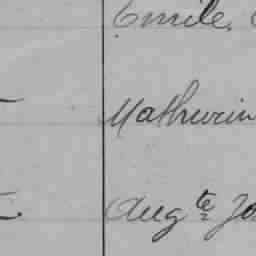 Emile,
Mathurin
Augte Jo